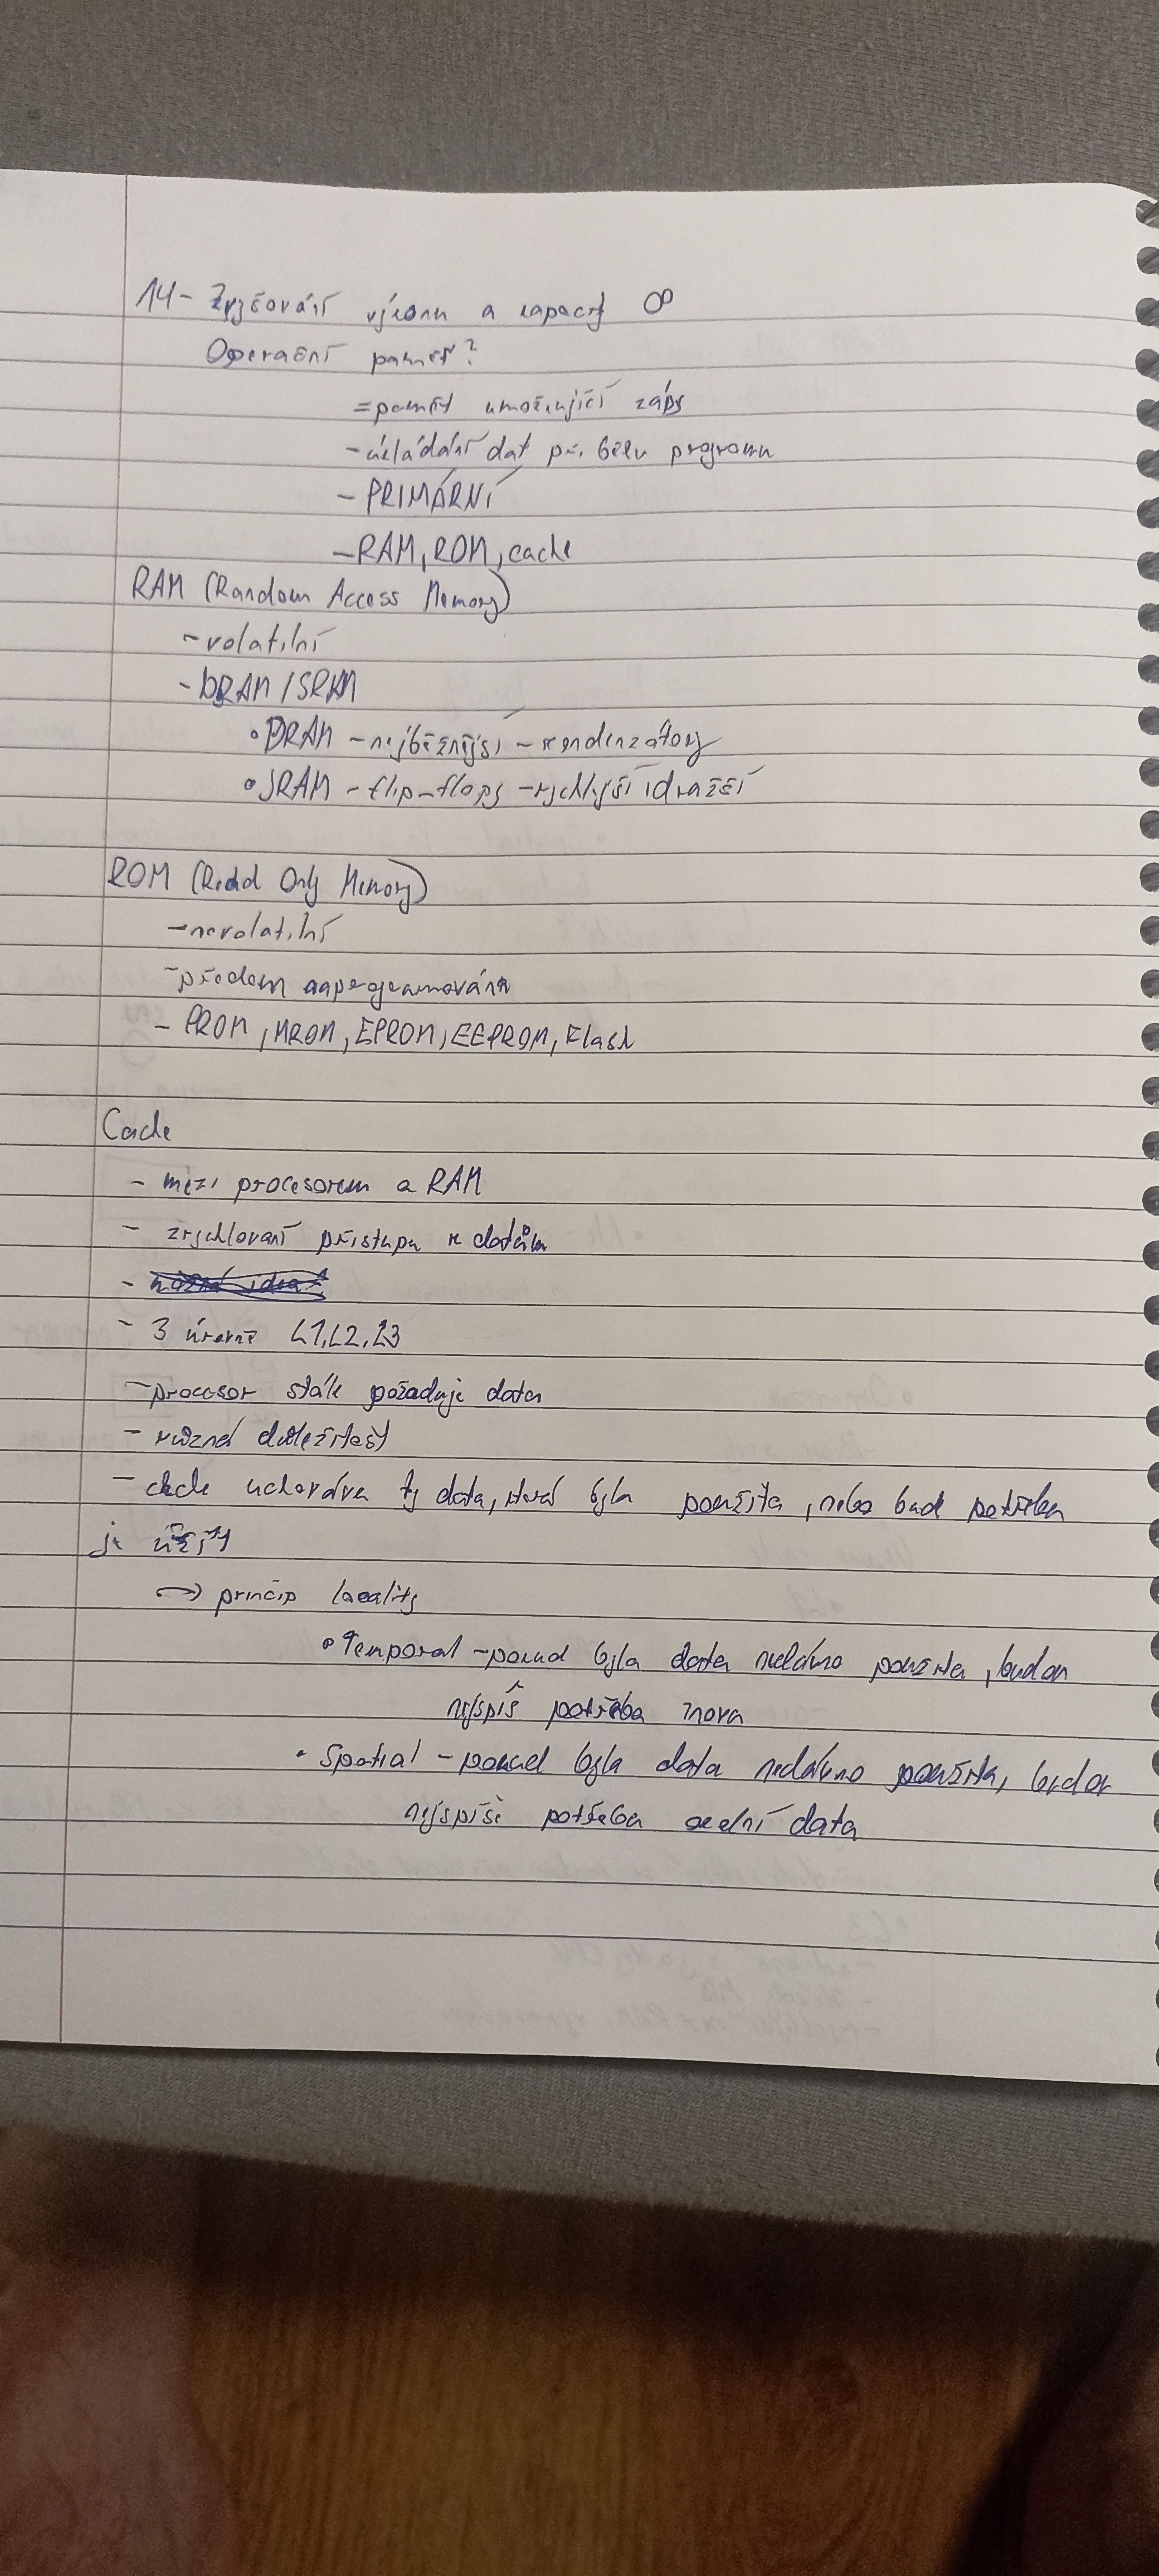 14 - Zvyšování výkonu a kapacity OP
Operační paměť?
= paměť umožnující zápis
- ukládání dat při běhu programu
- PRIMÁRNÍ
- RAM, ROM, cache
RAM (Random Access Memory)
- volatilní
- DRAM / SRAM
• DRAM - nejběžnější - kondenzátory
• SRAM - flip-flops - rychlejší i dražší
ROM (Read Only Memory)
- nevolatilní
- předem naprogramována
- PROM, MROM, EPROM, EEPROM, Flash
Cache
- mezi procesorem a RAM
- zrychlování přístupu k datům
-
- 3 úrovně L1, L2, L3
- procesor stále požaduje data
- různá důležitost
- cache uchovává ty data, která byla použita, nebo bude potřeba
je užít
↪ princip locality
• Temporal - pokud byla data nedávno použita, budou
nejspíš potřeba znova
• Spatial - pokud byla data nedávno použita, budou
nejspíše potřeba okolní data